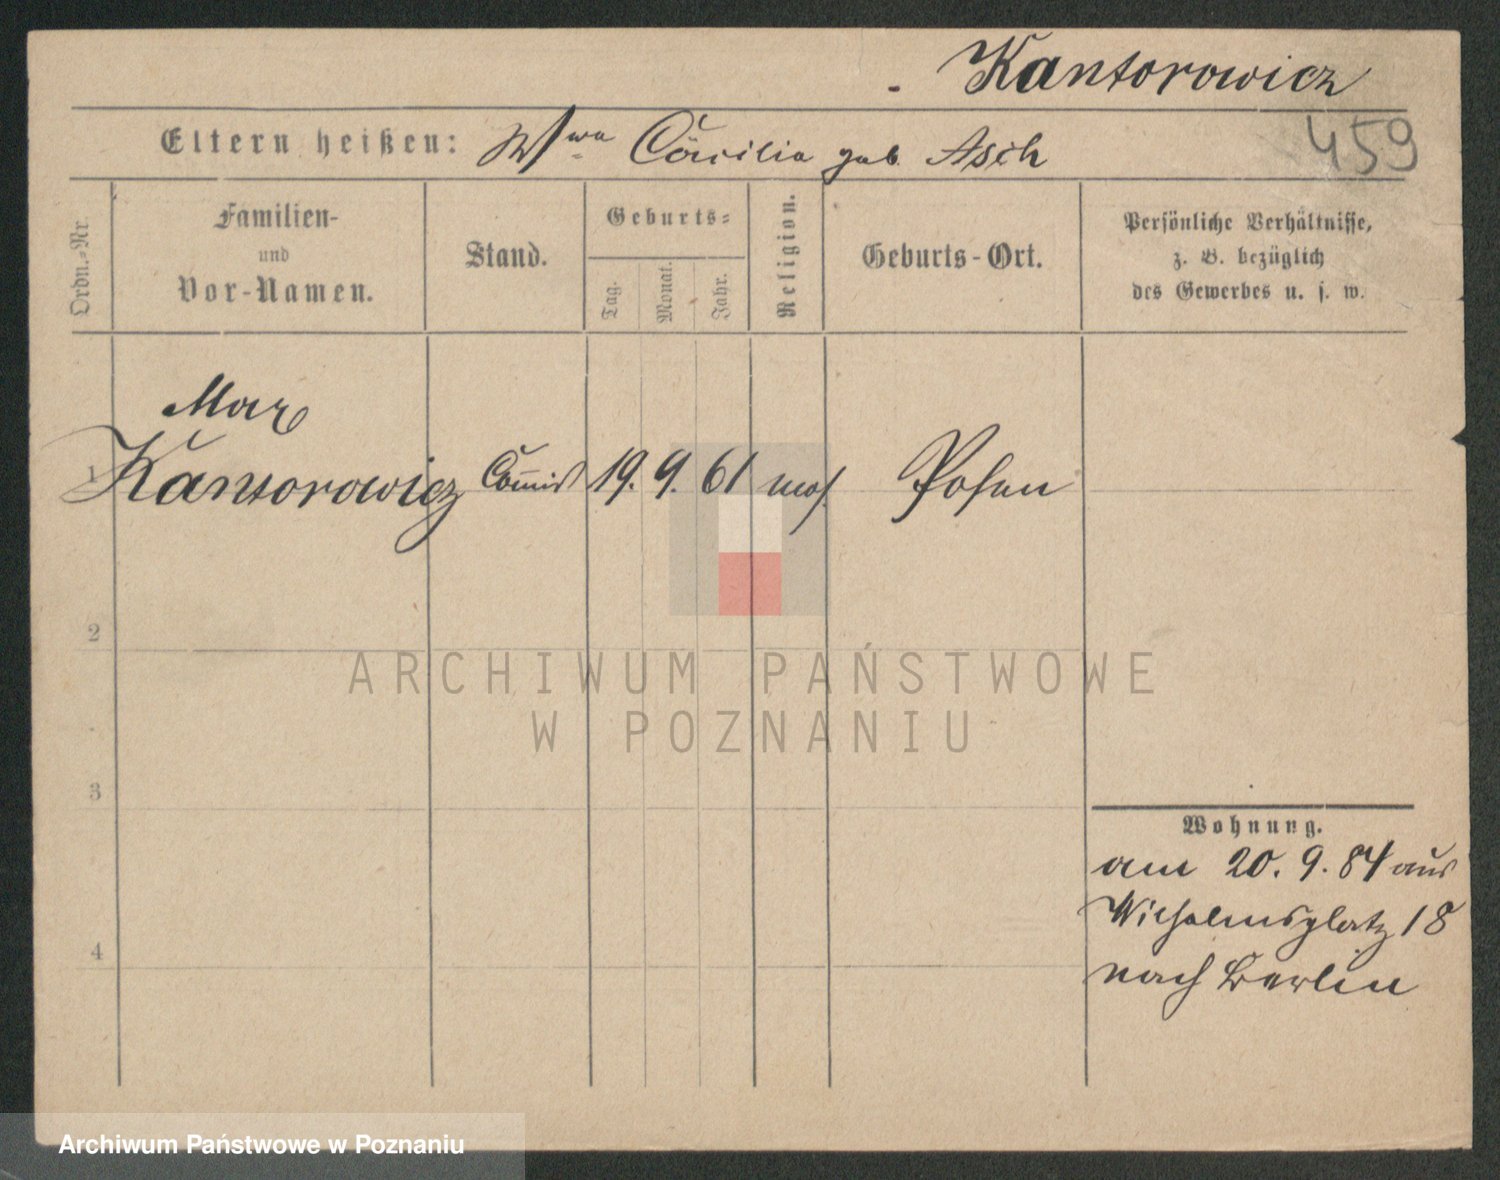 Kantorowicz
459
Eltern heißen: Wwe Cäcilia geb. Asch
Ordn.-Nr.
Familien-
und
Vor-Namen.
Stand.
Geburts-
Tag.
Monat.
Jahr.
Religion.
Geburts-Ort.
Persönliche Verhältnisse,
z. B. bezüglich
des Gewerbes u. s. w.
Max
1 Kantorowicz Com̅is 19. 9. 61 mos. Posen
2
ARCHIWUM PAŃSTWOWE
W POZNANIU
3
Wohnung.
am 20. 9. 84 aus
Wilhelmsplatz 18
4
nach Berlin
Archiwum Państwowe w Poznaniu